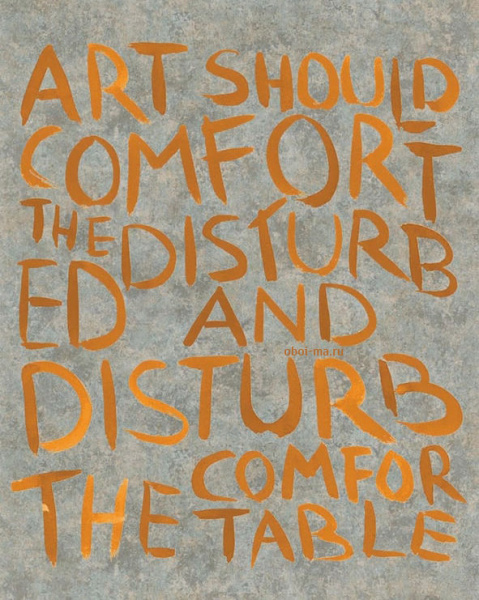 ART SHOULD
COMFORT
THE DISTURB
ED AND
oboi-ma.ru
DISTURB
THE COMFOR
TABLE